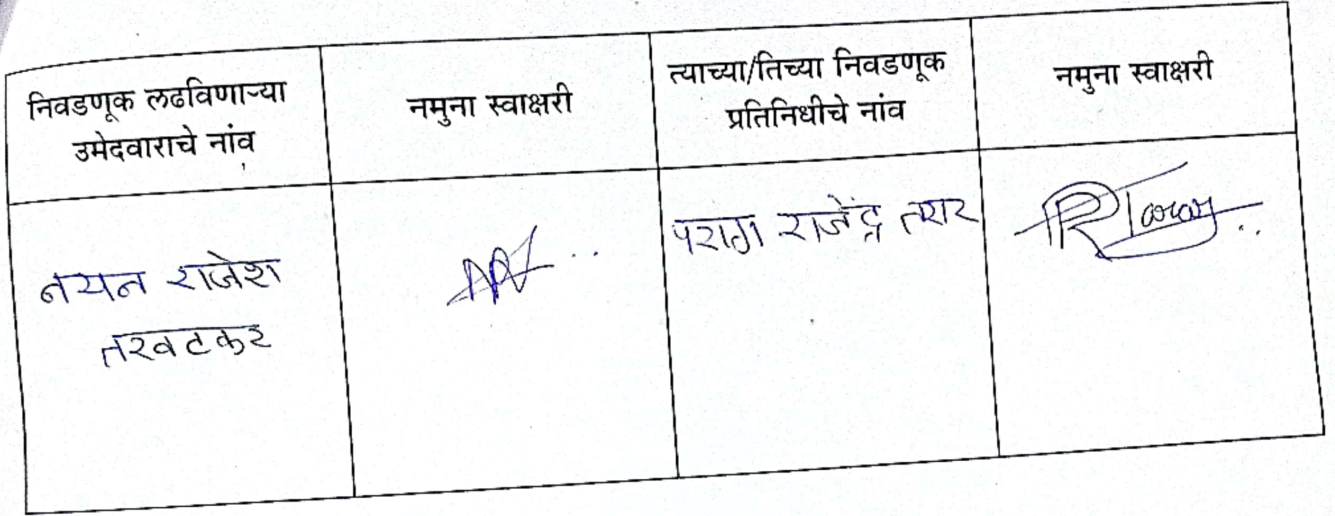 निवडणूक लढविणाऱ्या
उमेदवाराचे नांव
नमुना स्वाक्षरी
त्याच्या/तिच्या निवडणूक
प्रतिनिधीचे नांव
नमुना स्वाक्षरी
नयन राजेश
तरवटकर
पराग राजेंद्र